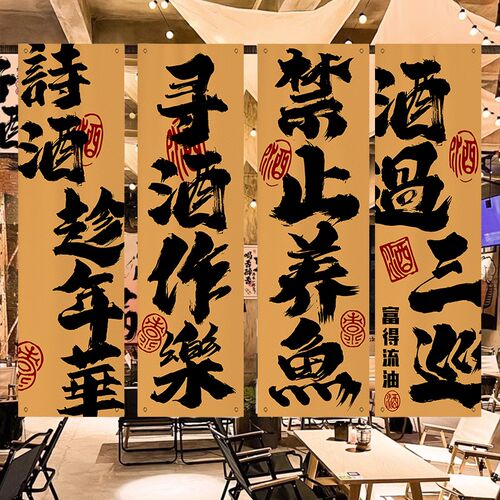 詩酒
趁年華
寻酒作樂
禁止养魚
酒過
三巡
富得流油
酒
酒
酒
酒